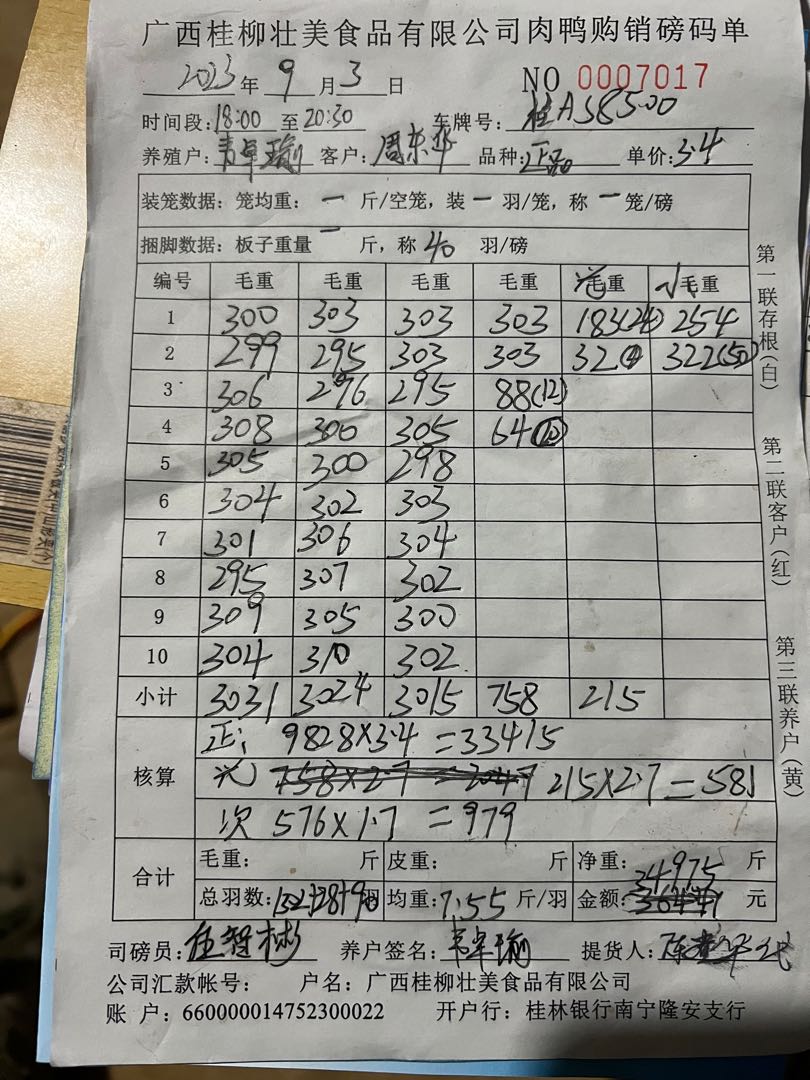 广西桂柳壮美食品有限公司肉鸭购销磅码单
2023年9月3日 NO 0007017
时间段:18:00至20:30 车牌号:桂A58500
养殖户:韦卓瑜 客户:周东华 品种:正品 单价:3.4
装笼数据:笼均重:一斤/空笼,装一羽/笼,称一笼/磅
捆脚数据:板子重量一斤,称40羽/磅
编号 毛重 毛重 毛重 毛重 毛重 毛重
1 300 303 303 303 183(24) 254
2 299 295 303 303 32(4) 322(50)
3 306 296 295 88(12)
4 308 300 305 64(10)
5 305 300 298
6 304 302 303
7 301 306 304
8 295 307 302
9 309 305 300
10 304 310 302
小计 3031 3024 3015 758 215
核算
正: 9828×3.4=33415
758×2.7=2047 215×2.7=581
次 576×1.7=979
合计 毛重: 斤 皮重: 斤 净重: 斤
34975
总羽数: 羽 均重:7.55斤/羽 金额: 元
司磅员: 养户签名:韦卓瑜 提货人:
公司汇款帐号: 户名:广西桂柳壮美食品有限公司
账 户:660000014752300022 开户行:桂林银行南宁隆安支行
第一联存根(白)
第二联客户(红)
第三联养户(黄)